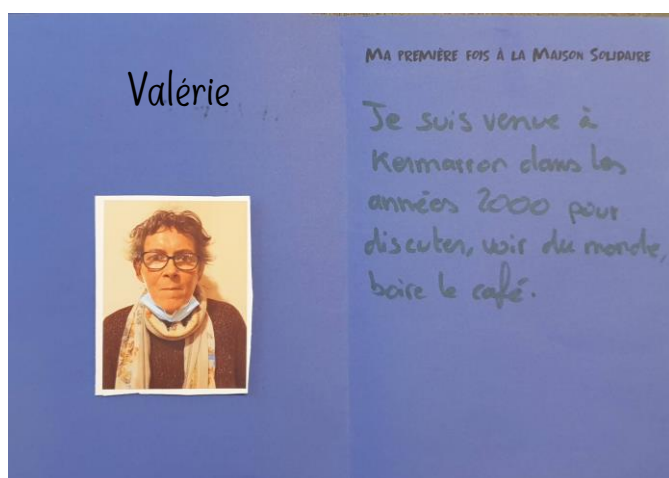 Valérie
MA PREMIÈRE FOIS À LA MAISON SOLIDAIRE
Je suis venue à
Kermarron dans les
années 2000 pour
discuter, voir du monde,
boire le café.